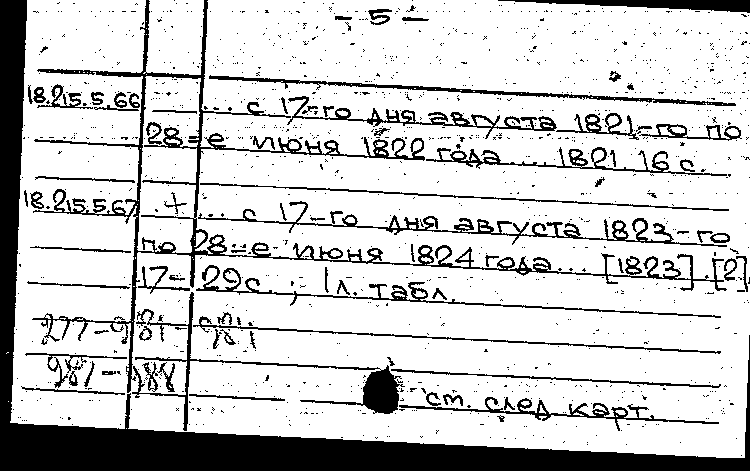 – 5 –
18.215.5.66 ... с 17-го дня августа 1821-го по
28-е июня 1822 года ... 1821. 16 с.
18.215.5.67 + ... с 17-го дня августа 1823-го
по 28-е июня 1824 года ... [1823]. [2],
17-29 с.; 1 л. табл.
277-981
981-988
см. след карт.